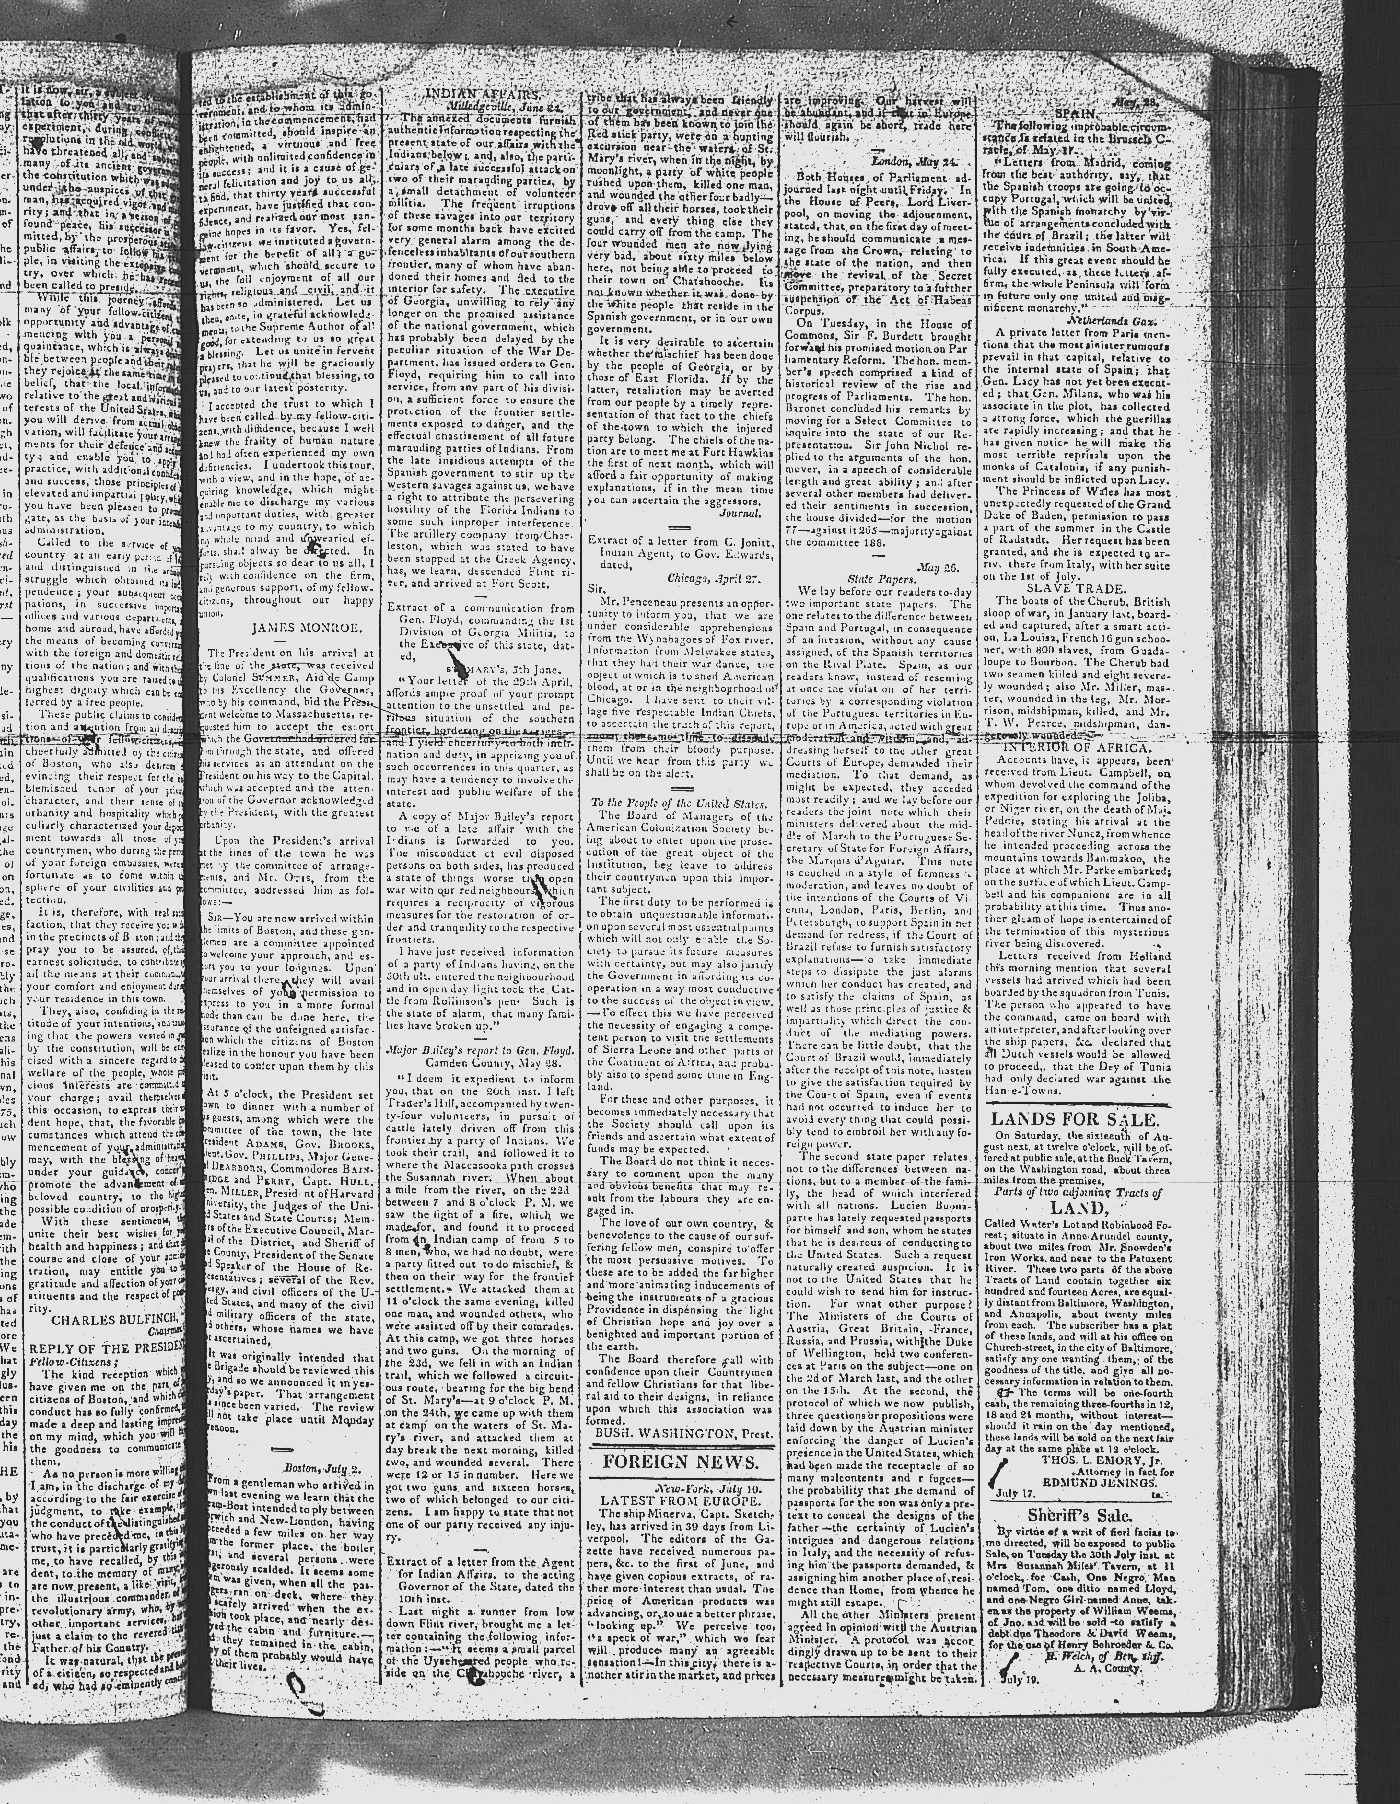 it is now, sir, a subject of
lation to you and to
that after thirty years of
experiment, during conflicts
revolutions in the old world
have threatened all, and
many of its ancient
the constitution which was
under the auspices of
man, has acquired vigor and
rity; and that in a season of
found peace, his successor
mitted, by the prosperous
public affairs, to follow his
ple, in visiting the extensive
try, over which he has
been called to preside.
While this journey affords
many of your fellow-citizens
opportunity and advantage of
mencing with you a personal
quaintance, which is always
ble between people and
they rejoice at the same time
belief, that the local
relative to the great and
terests of the United States,
you will derive from actual
vation, will facilitate your
ments for their defence and
ty; and enable you to apply
practice, with additional
and success, those principles of
elevated and impartial policy,
you have been pleased to
gate, as the basis of your
administration.
Called to the service of
country at an early period of
and distinguished in the
struggle which obtained
pendence; your subsequent
pations, in successive
offices and various departments,
home and abroad, have afforded
the means of becoming
with the foreign and domestic
tions of the nation; and
qualifications you are raised to
highest dignity which can be
ferred by a free people.
These public claims to
tion and attention from
tions of fellow-citizens
cheerfully admitted
of Boston, who also
evincing their respect for the
blemished tenor of your
character, and their sense of
urbanity and hospitality which
culiarly characterized your
ment towards all those of
countrymen, who during the
of your foreign embassies, were
fortunate as to come within
sphere of your civilities and
tection.
It is, therefore, with real
faction, that they receive you
in the precincts of Boston; and
pray you to be assured, of
earnest solicitude, to contribute
all the means at their
your comfort and enjoyment
your residence in this town.
They, also, confiding in the
titude of your intentions,
ing that the powers vested in
by the constitution, will be
cised with a sincere regard to
welfare of the people, whose
cious interests are
your charge; avail themselves
this occasion, to express their
dent hope, that, the favorable
cumstances which attend the
mencement of your administration
may, with the blessing of heaven
under your guidance
promote the advancement of
beloved country, to the highest
possible condition of prosperity.
With these sentiments,
unite their best wishes for
health and happiness; and that
course and close of your
tration, may entitle you to
gratitude and affection of your
stituents and the respect of
rity.
CHARLES BULFINCH,
Chairman
REPLY OF THE PRESIDENT
Fellow-Citizens;
The kind reception which
have given me on the part of
citizens of Boston, and which
conduct has so fully confirmed,
made a deep and lasting
on my mind, which you will
the goodness to communicate
them.
As no person is more willing
I am, in the discharge of my
according to the fair exercise of
judgment, to example,
the conduct of the distinguished
who have preceded me, in this
trust, it is particularly gratifying
me, to have recalled, by this
dent, to the memory of many
are now present, a like
the illustrious commander of
revolutionary army, who, by
other important services,
just a claim to the revered
Father of his Country.
It was natural, that the
of a citizen, so respected and
ed, who had so eminently
to the establishment of this go-
vernment, and to whom its admin-
istration, in the commencement, had
been committed, should inspire an
enlightened, a virtuous and free
people, with unlimited confidence in
its success; and it is a cause of ge-
neral felicitation and joy to us all,
to find, that thirty years successful
experiment, have justified that con-
fidence, and realized our most san-
guine hopes in its favor. Yes, fel-
low-citizens, we instituted a govern-
ment for the benefit of all; a go-
vernment, which should secure to
us, the full enjoyment of all our
rights, religious and civil, and it
has been so administered. Let us
then, unite, in grateful acknowledg-
ments, to the Supreme Author of all
good, for extending to us so great
a blessing. Let us unite in fervent
prayers, that he will be graciously
pleased to continue that blessing, to
us, and to our latest posterity.
I accepted the trust to which I
have been called by my fellow-citi-
zens, with diffidence, because I well
knew the frailty of human nature
and had often experienced my own
deficiencies. I undertook this tour,
with a view, and in the hope, of ac-
quiring knowledge, which might
enable me to discharge my various
and important duties, with greater
advantage to my country, to which
my whole mind and unwearied ef-
forts, shall alway be directed. In
pursuing objects so dear to us all, I
rely with confidence on the firm,
and generous support, of my fellow-
citizens, throughout our happy
union.
JAMES MONROE.
The President on his arrival at
the line of the state, was received
by Colonel SUMNER, Aid de Camp
to his Excellency the Governor,
who by his command, bid the Presi-
dent welcome to Massachusetts, re-
quested him to accept the escort
which the Governor had ordered for
him through the state, and offered
his services as an attendant on the
President on his way to the Capital.
which was accepted and the atten-
tion of the Governor acknowledged
by the President, with the greatest
urbanity.
Upon the President's arrival
at the lines of the town he was
met by the committee of arrange-
ments, and Mr. OTIS, from the
committee, addressed him as fol-
lows:—
SIR—You are now arrived within
the limits of Boston, and these gen-
tlemen are a committee appointed
to welcome your approach, and es-
cort you to your lodgings. Upon
your arrival there they will avail
themselves of your permission to
express to you in a more formal
mode than can be done here, the
assurance of the unfeigned satisfac-
tion which the citizens of Boston
realize in the honour you have been
pleased to confer upon them by this
visit.
At 5 o'clock, the President set
down to dinner with a number of
guests, among which were the
committee of the town, the late
President ADAMS, Gov. BROOKS,
Lt. Gov. PHILLIPS, Major Gene-
ral DEARBORN, Commodores BAIN-
BRIDGE and PERRY, Capt. HULL,
MILLER, President of Harvard
University, the Judges of the Uni-
ted States and State Courts; Mem-
bers of the Executive Council, Mar-
shal of the District, and Sheriff of
the County, President of the Senate
and Speaker of the House of Re-
presentatives; several of the Rev.
Clergy, and civil officers of the U-
nited States, and many of the civil
and military officers of the state,
and others, whose names we have
not ascertained,
It was originally intended that
the Brigade should be reviewed this
day, and so we announced it in yes-
terday's paper. That arrangement
has since been varied. The review
will not take place until Monday
afternoon.
Boston, July 2.
From a gentleman who arrived in
town last evening we learn that the
Steam-Boat intended to ply between
Norwich and New-London, having
proceeded a few miles on her way
from the former place, the boiler
burst, and several persons were
dangerously scalded. It seems some
alarm was given, when all the pas-
sengers ran on deck, where they
had scarcely arrived when the ex-
plosion took place, and nearly des-
troyed the cabin and furniture.—
Had they remained in the cabin,
many of them probably would have
lost their lives.
INDIAN AFFAIRS.
Milledgeville, June 24.
The annexed documents furnish
authentic information respecting the
present state of our affairs with the
Indians below; and, also, the parti-
culars of a late successful attack on
two of their marauding parties, by
a small detachment of volunteer
militia. The frequent irruptions
of these savages into our territory
for some months back have excited
very general alarm among the de-
fenceless inhabitants of our southern
frontier, many of whom have aban-
doned their homes and fled to the
interior for safety. The executive
of Georgia, unwilling to rely any
longer on the promised assistance
of the national government, which
has probably been delayed by the
peculiar situation of the War De-
partment, has issued orders to Gen.
Floyd, requiring him to call into
service, from any part of his divisi-
on, a sufficient force to ensure the
protection of the frontier settle-
ments exposed to danger, and the
effectual chastisement of all future
marauding parties of Indians. From
the late insidious attempts of the
Spanish government to stir up the
western savages against us, we have
a right to attribute the persevering
hostility of the Florida Indians to
some such improper interference.
The artillery company from Char-
leston, which was stated to have
been stopped at the Creek Agency,
has, we learn, descended Flint ri-
ver, and arrived at Fort Scott.
Extract of a communication from
Gen. Floyd, commanding the 1st
Division of Georgia Militia, to
the Executive of this state, dat-
ed,
ST. MARY'S, 5th June.
"Your letter of the 25th April,
affords ample proof of your prompt
attention to the unsettled and pe-
rilous situation of the southern
frontier, bordering on the savages,
and I yield cheerfully to both incli-
nation and duty, in apprizing you of
such occurrences in this quarter, as
may have a tendency to involve the
interest and public welfare of the
state.
A copy of Major Bailey's report
to me of a late affair with the
Indians is forwarded to you.
The misconduct of evil disposed
persons on both sides, has produced
a state of things worse than open
war with our red neighbours, which
requires a reciprocity of vigorous
measures for the restoration of or-
der and tranquility to the respective
frontiers.
I have just received information
of a party of Indians having, on the
30th ult. entered the neighbourhood
and in open day light took the Cat-
tle from Rollinson's pen. Such is
the state of alarm, that many fami-
lies have broken up."
Major Bailey's report to Gen. Floyd.
Camden County, May 28.
"I deem it expedient to inform
you, that on the 20th inst. I left
Trader's Hill, accompanied by twen-
ty-four volunteers, in pursuit of
cattle lately driven off from this
frontier by a party of Indians. We
took their trail, and followed it to
where the Maccasooka path crosses
the Susannah river. When about
a mile from the river, on the 22d
between 7 and 8 o'clock P. M. we
saw the light of a fire, which we
made for, and found it to proceed
from Indian camp of from 5 to
8 men, who, we had no doubt, were
a party fitted out to do mischief, &
then on their way for the frontier
settlement. We attacked them at
11 o'clock the same evening, killed
one man, and wounded others, who
were assisted off by their comrades.
At this camp, we got three horses
and two guns. On the morning of
the 23d, we fell in with an Indian
trail, which we followed a circuit-
ous route, bearing for the big bend
of St. Mary's—at 9 o'clock P. M.
on the 24th, we came up with them
at camp on the waters of St. Ma-
ry's river, and attacked them at
day break the next morning, killed
two, and wounded several. There
were 12 or 15 in number. Here we
got two guns, and sixteen horses,
two of which belonged to our citi-
zens. I am happy to state that not
one of our party received any inju-
ry.
Extract of a letter from the Agent
for Indian Affairs, to the acting
Governor of the State, dated the
10th inst.
Last night a runner from low
down Flint river, brought me a let-
ter containing the following infor-
mation:—"It seems a small party
of the Uyseheared people who re-
side on the river, a
tribe that has always been friendly
to our government, and never one
of them has been known to join the
Red stick party, were on a hunting
excursion near the waters of St.
Mary's river, when in the night, by
moonlight, a party of white people
rushed upon them, killed one man,
and wounded the other four badly—
drove off all their horses, took their
guns, and every thing else they
could carry off from the camp. The
four wounded men are now lying
very bad, about sixty miles below
here, not being able to proceed to
their town on Chatahooche. Its
not known whether it was done by
the white people that reside in the
Spanish government, or in our own
government.
It is very desirable to ascertain
whether the mischief has been done
by the people of Georgia, or by
those of East Florida. If by the
latter, retaliation may be averted
from our people by a timely repre-
sentation of that fact to the chiefs
of the town to which the injured
party belong. The chiefs of the na-
tion are to meet me at Fort Hawkins
the first of next month, which will
afford a fair opportunity of making
explanations, if in the mean time
you can ascertain the aggressors.
Journal.
Extract of a letter from C. Jouitt,
Indian Agent, to Gov. Edwards,
dated,
Chicago, April 27.
Sir,
Mr. Penceneau presents an oppor-
tunity to inform you, that we are
under considerable apprehensions
from the Wynabagoes of Fox river.
Information from Melwakee states,
that they had their war dance, the
object of which is to shed American
blood, at or in the neighborhood of
Chicago. I have sent to their vil-
lage five respectable Indian Chiefs,
to ascertain the truth of this report,
and at the same time to dissuade
them from their bloody purpose.
Until we hear from this party we
shall be on the alert.
To the People of the United States.
The Board of Managers of the
American Colonization Society be-
ing about to enter upon the prose-
cution of the great object of the
Institution, beg leave to address
their countrymen upon this impor-
tant subject.
The first duty to be performed is
to obtain unquestionable informati-
on upon several most essential points
which will not only enable the So-
ciety to pursue its future measures
with certainty, but may also justify
the Government in affording its co-
operation in a way most conductive
to the success of the object in view.
—To effect this we have perceived
the necessity of engaging a compe-
tent person to visit the settlements
of Sierra Leone and other parts of
the Continent of Africa, and proba-
bly also to spend some time in Eng-
land.
For these and other purposes, it
becomes immediately necessary that
the Society should call upon its
friends and ascertain what extent of
funds may be expected.
The Board do not think it neces-
sary to comment upon the many
and obvious benefits that may re-
sult from the labours they are en-
gaged in.
The love of our own country, &
benevolence to the cause of our suf-
fering fellow men, conspire to offer
the most persuasive motives. To
these are to be added the far higher
and more animating inducements of
being the instruments of a gracious
Providence in dispensing the light
of Christian hope and joy over a
benighted and important portion of
the earth.
The Board therefore call with
confidence upon their Countrymen
and fellow Christians for that libe-
ral aid to their designs, in reliance
upon which this association was
formed.
BUSH. WASHINGTON, Prest.
FOREIGN NEWS.
New-York, July 10.
LATEST FROM EUROPE.
The ship Minerva, Capt. Sketch-
ley, has arrived in 39 days from Li-
verpool. The editors of the Ga-
zette have received numerous pa-
pers, &c. to the first of June, and
have given copious extracts, of ra-
ther more interest than usual. The
price of American products was
advancing, or, to use a better phrase,
"looking up." We perceive too,
"a speck of war," which we fear
will produce many an agreeable
sensation!—In this city, there is a-
nother stir in the market, and prices
are improving. Our harvest will
be abundant, and if that in Europe
should again be short, trade here
will flourish.
London, May 24.
Both Houses of Parliament ad-
journed last night until Friday. In
the House of Peers, Lord Liver-
pool, on moving the adjournment,
stated, that on the first day of meet-
ing, he should communicate a mes-
sage from the Crown, relating to
the state of the nation, and then
move the revival of the Secret
Committee, preparatory to a further
suspension of the Act of Habeas
Corpus.
On Tuesday, in the House of
Commons, Sir F. Burdett brought
forward his promised motion on Par
liamentary Reform. The hon. mem-
ber's speech comprised a kind of
historical review of the rise and
progress of Parliaments. The hon.
Baronet concluded his remarks by
moving for a Select Committee to
inquire into the state of our Re-
presentation. Sir John Nichol re-
plied to the arguments of the hon.
mover, in a speech of considerable
length and great ability; and after
several other members had deliver-
ed their sentiments in succession,
the house divided—for the motion
77—against it 265—majority against
the committee 188.
May 26.
State Papers.
We lay before our readers to-day
two important state papers. The
one relates to the difference between
Spain and Portugal, in consequence
of an invasion, without any cause
assigned, of the Spanish territories
on the Rival Plate. Spain, as our
readers know, instead of resenting
at once the violation of her terri-
tories by a corresponding violation
of the Portuguese territories in Eu-
rope or in America, acted with great
moderation and wisdom—and, ad-
dressing herself to the other great
Courts of Europe, demanded their
mediation. To that demand, as
might be expected, they acceded
most readily; and we lay before our
readers the joint note which their
ministers delivered about the mid-
dle of March to the Portuguese Se-
cretary of State for Foreign Affairs,
the Marquis d'Aguiar. This note
is couched in a style of firmness &
moderation, and leaves no doubt of
the intentions of the Courts of Vi-
enna, London, Paris, Berlin, and
Petersburgh, to support Spain in her
demand for redress, if the Court of
Brazil refuse to furnish satisfactory
explanations—to take immediate
steps to dissipate the just alarms
which her conduct has created, and
to satisfy the claims of Spain, as
well as those principles of justice &
impartiality which direct the con-
duct of the mediating powers.
There can be little doubt, that the
Court of Brazil would, immediately
after the receipt of this note, hasten
to give the satisfaction required by
the Court of Spain, even if events
had not occurred to induce her to
avoid every thing that could possi-
bly tend to embroil her with any fo-
reign power.
The second state paper relates
not to the differences between na-
tions, but to a member of the fami-
ly, the head of which interfered
with all nations. Lucien Buona-
parte has lately requested passports
for himself and son, whom he states
that he is desirous of conducting to
the United States. Such a request
naturally created suspicion. It is
not to the United States that he
could wish to send him for instruc-
tion. For what other purpose?
The Ministers of the Courts of
Austria, Great Britain, France,
Russia, and Prussia, with the Duke
of Wellington, held two conferen-
ces at Paris on the subject—one on
the 2d of March last, and the other
on the 15th. At the second, the
protocol of which we now publish,
three questions or propositions were
laid down by the Austrian minister
enforcing the danger of Lucien's
presence in the United States, which
had been made the receptacle of so
many malcontents and refugees—
the probability that the demand of
passports for the son was only a pre-
text to conceal the designs of the
father—the certainty of Lucien's
intrigues and dangerous relations
in Italy, and the necessity of refus-
ing him the passports demanded, &
assigning him another place of resi-
dence than Rome, from whence he
might still escape.
All the other Ministers present
agreed in opinion with the Austrian
Minister. A protocol was accor
dingly drawn up to be sent to their
respective Courts, in order that the
necessary measures might be taken.
May, 28.
SPAIN.
The following improbable circum-
stance is related in the Brussels O-
racle, of May 17.
"Letters from Madrid, coming
from the best authority, say, that
the Spanish troops are going to oc-
cupy Portugal, which will be united
with the Spanish monarchy by vir-
tue of arrangements concluded with
the court of Brazil; the latter will
receive indemnities in South Ame-
rica. If this great event should be
fully executed, as these letters af-
firm, the whole Peninsula will form
in future only one united and mag-
nificent monarchy."
Netherlands Gaz.
A private letter from Paris men-
tions that the most sinister rumours
prevail in that capital, relative to
the internal state of Spain; that
Gen. Lacy has not yet been execut-
ed; that Gen. Milans, who was his
associate in the plot, has collected
a strong force, which the guerillas
are rapidly increasing; and that he
has given notice he will make the
most terrible reprisals upon the
monks of Catalonia, if any punish-
ment should be inflicted upon Lacy.
The Princess of Wales has most
unexpectedly requested of the Grand
Duke of Baden, permission to pass
a part of the summer in the Castle
of Radstadt. Her request has been
granted, and she is expected to ar-
rive there from Italy, with her suite
on the 1st of July.
SLAVE TRADE.
The boats of the Cherub, British
sloop of war, in January last, board-
ed and captured, after a smart acti-
on, La Louisa, French 16 gun schoo-
ner, with 800 slaves, from Guada-
loupe to Bourbon. The Cherub had
two seamen killed and eight severe-
ly wounded; also Mr. Miller, mas-
ter, wounded in the leg, Mr. Mor-
rison, midshipman, killed, and Mr.
T. W. Pearce, midshipman, dan-
gerously wounded.
INTERIOR OF AFRICA.
Accounts have, it appears, been
received from Lieut. Campbell, on
whom devolved the command of the
expedition for exploring the Joliba,
or Niger river, on the death of Maj.
Peddie, stating his arrival at the
head of the river Nunez, from whence
he intended proceeding across the
mountains towards Bammakoo, the
place at which Mr. Parke embarked;
on the surface of which Lieut. Camp-
bell and his companions are in all
probability at this time. Thus ano-
ther gleam of hope is entertained of
the termination of this mysterious
river being discovered.
Letters received from Holland
this morning mention that several
vessels had arrived which had been
boarded by the squadron from Tunis.
The person who appeared to have
the command, came on board with
an interpreter, and after looking over
the ship papers, &c. declared that
all Dutch vessels would be allowed
to proceed, that the Dey of Tunis
had only declared war against the
Hanse-Towns.
LANDS FOR SALE.
On Saturday, the sixteenth of Au-
gust next, at twelve o'clock, will be of-
fered at public sale, at the Buck Tavern,
on the Washington road, about three
miles from the premises,
Parts of two adjoining Tracts of
LAND,
Called Water's Lot and Robinhood Fo-
rest; situate in Anne-Arundel county,
about two miles from Mr. Snowden's
Iron Works, and near to the Patuxent
River. These two parts of the above
Tracts of Land contain together six
hundred and fourteen Acres, are equal-
ly distant from Baltimore, Washington,
and Annapolis, about twenty miles
from each. The subscriber has a plat
of these lands, and will at his office on
Church-street, in the city of Baltimore,
satisfy any one wanting them, of the
goodness of the title, and give all ne-
cessary information in relation to them.
☞ The terms will be one-fourth
cash, the remaining three-fourths in 12,
18 and 24 months, without interest—
should it rain on the day mentioned,
these lands will be sold on the next fair
day at the same place at 12 o'clock.
THOS. L. EMORY, Jr.
Attorney in fact for
EDMUND JENINGS.
July 17. ts.
Sheriff's Sale.
By virtue of a writ of fieri facias to
me directed, will be exposed to public
Sale, on Tuesday the 30th July inst. at
Mrs Susannah Miles' Tavern, at 11
o'clock, for Cash, One Negro Man
named Tom, one ditto named Lloyd,
and one Negro Girl named Anne, tak-
en as the property of William Weems,
of Jno. and will be sold to satisfy a
debt due Theodore & David Weems,
for the use of Henry Schroeder & Co.
R. Welch, of Ben, Shff.
A. A. County.
July 19.